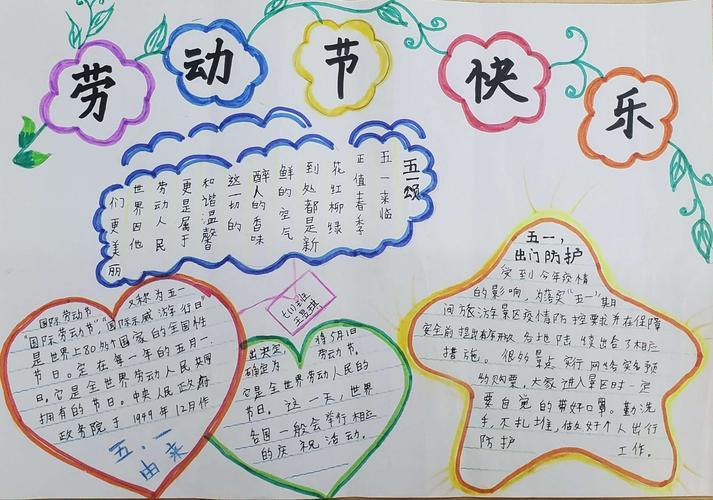 劳动节快乐
五一颂
五一来临
正值春季
花红柳绿
到处都是新
鲜的空气
醉人的香味
这一切的
和谐温馨
更是属于
劳动人民
世界因他
们更美丽
国际劳动节 又称为五一
“国际劳动节”、“国际示威游行日”
是世界上80多个国家的全国性
节日。定在每一年的五月一
日。它是全世界劳动人民共同
拥有的节日。中央人民政府
政务院于1949年12月作
五、一
由来
出决定, 将5月1日
确定为 劳动节。
它是全世界劳动人民的
节日。这一天,世界
各国一般会举行相应
的庆祝活动。
五一,
出门防护
受到今年疫情
的影响,为落实“五一”期
间旅游景区疫情防控要求并在保障
安全前提出有序开放 各地陆续出台了相应
措施。很多景点实行网络实名预
约购票,大家进入景区时一定
要自觉的带好口罩。勤洗
手,不扎堆,做好个人出行
防护 工作。